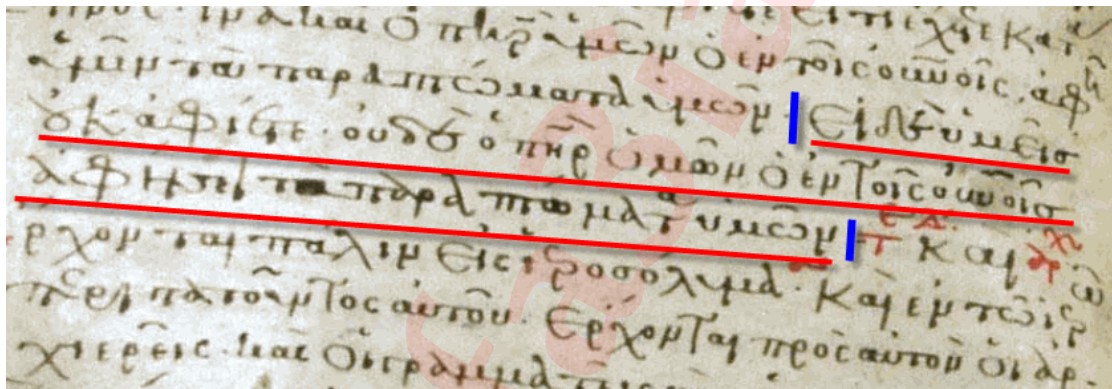 ει τι εχετε κατ
προς· ἵνα καὶ ὁ πηρ ὑμῶν ὁ ἐν τοῖς οὐνοῖς. ἀφῆ
ὑμῖν τὰ παραπτώματα ὑμῶν· Εἰ δὲ ὑμεῖς
οὐκ ἀφίετε· οὐδὲ ὁ πηρ ὑμῶν ὁ ἐν τοῖς οὐνοῖς
ἀφήσει τὰ παραπτώματα ὑμῶν Καὶ
ρχονται πάλιν εἰς ἱεροσόλυμα. Καὶ ἐν τῶ ἱερ
περιπατοῦντος αὐτοῦ· Ἔρχονται πρὸς αὐτὸν οἱ ἀρ
χιερεῖς· καὶ οἱ γραμματεῖς